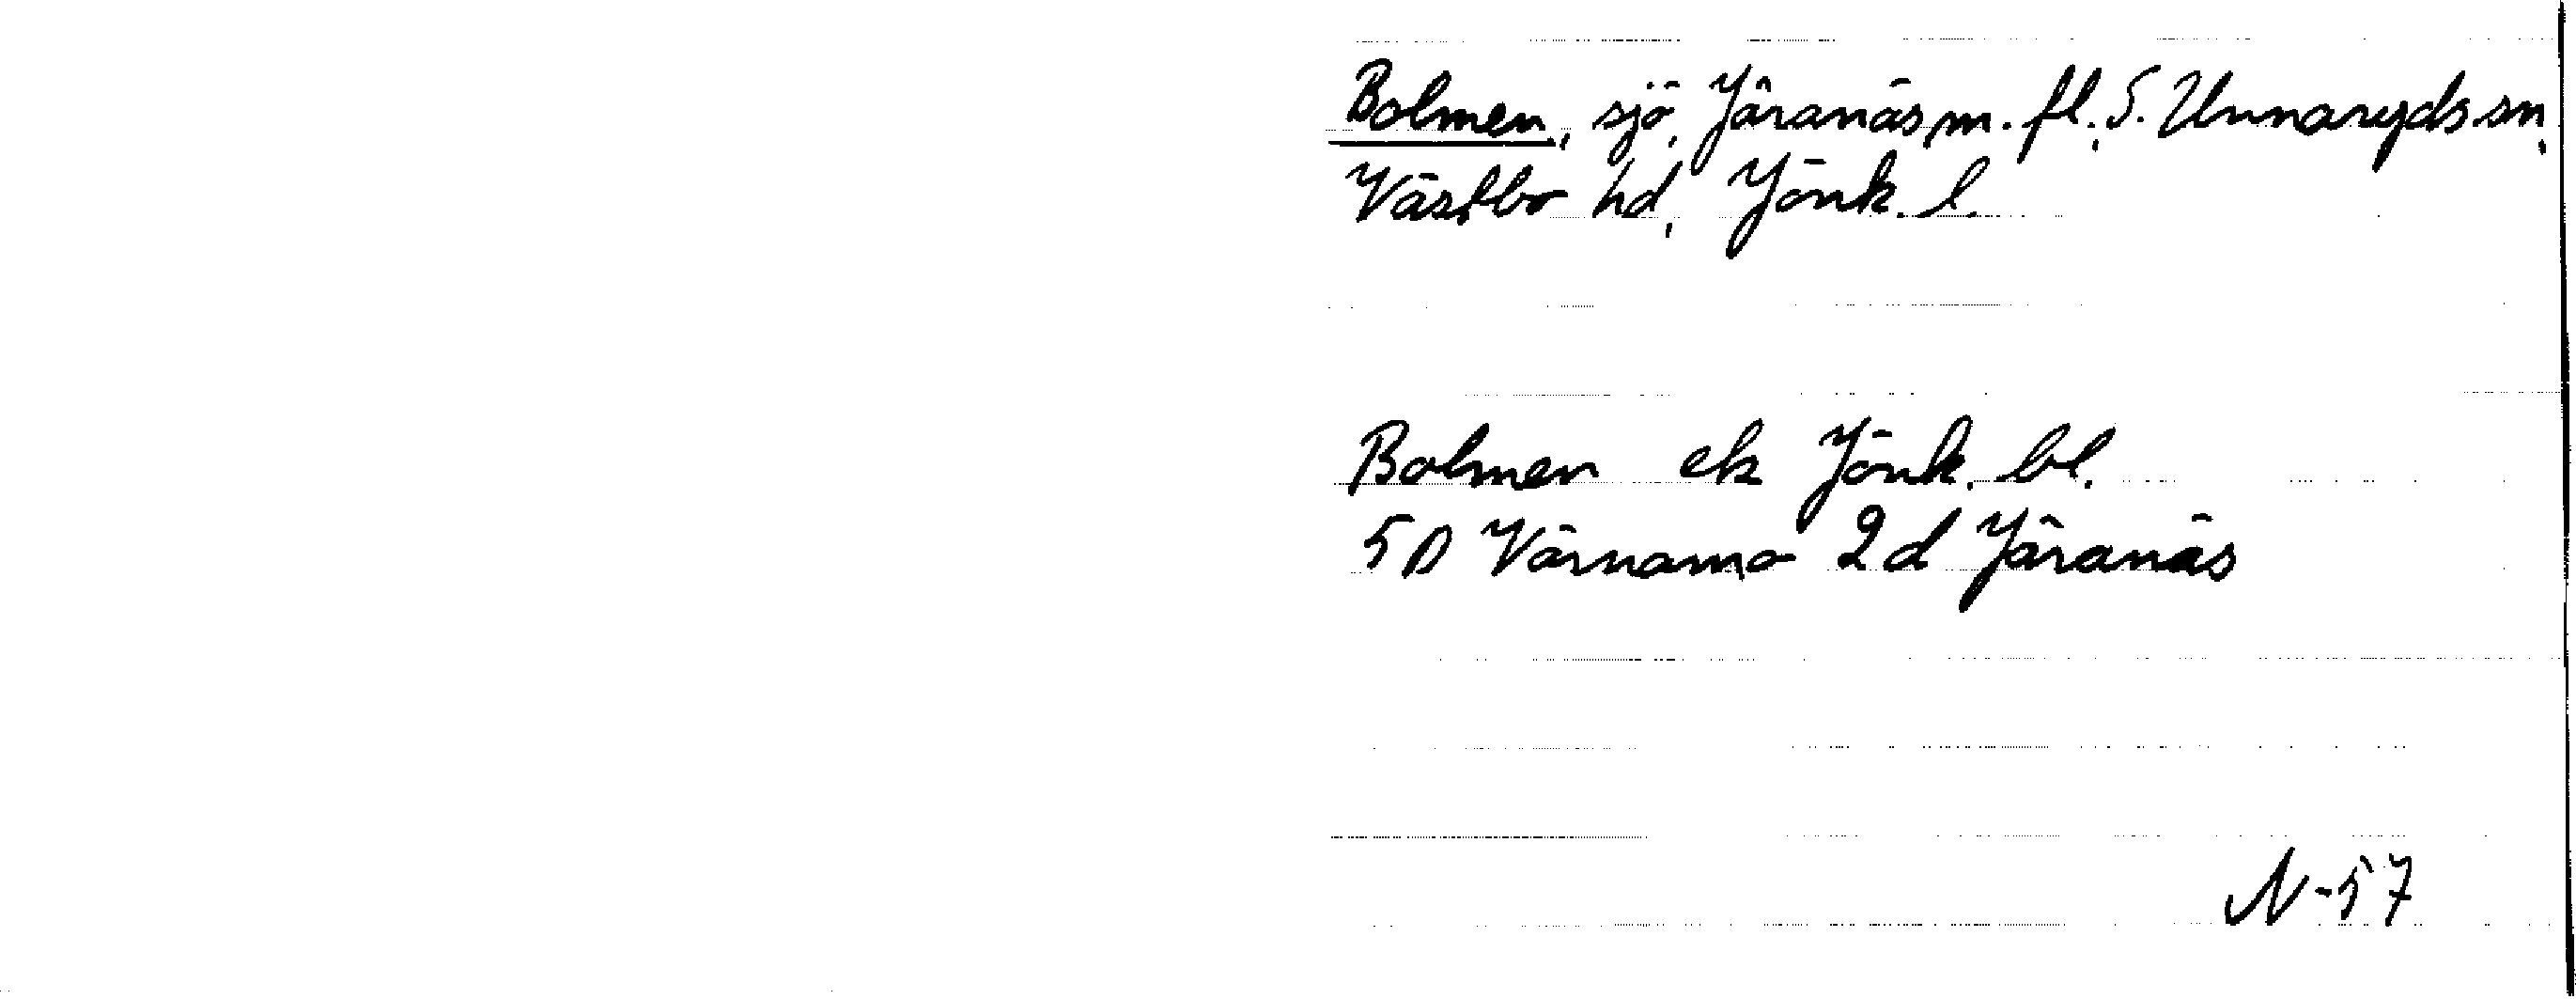 Bolmen, sjö, Järanäs m. fl., S. Unnaryds sn,
Västbo hd, Jönk. l.
Bolmen ek Jönk. bl.
5D Värnamo 2d Järanäs
N-57